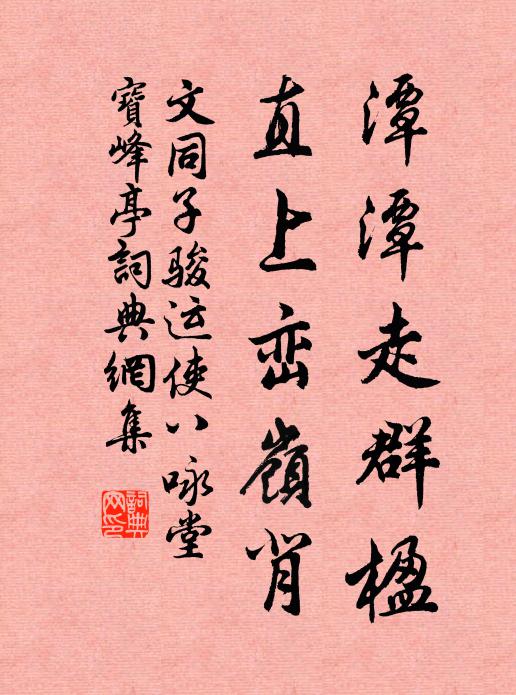 潭潭走群楹
直上峦嶺背
文同子骏运使八咏堂
寶峰亭詞典網集
詞典
网印